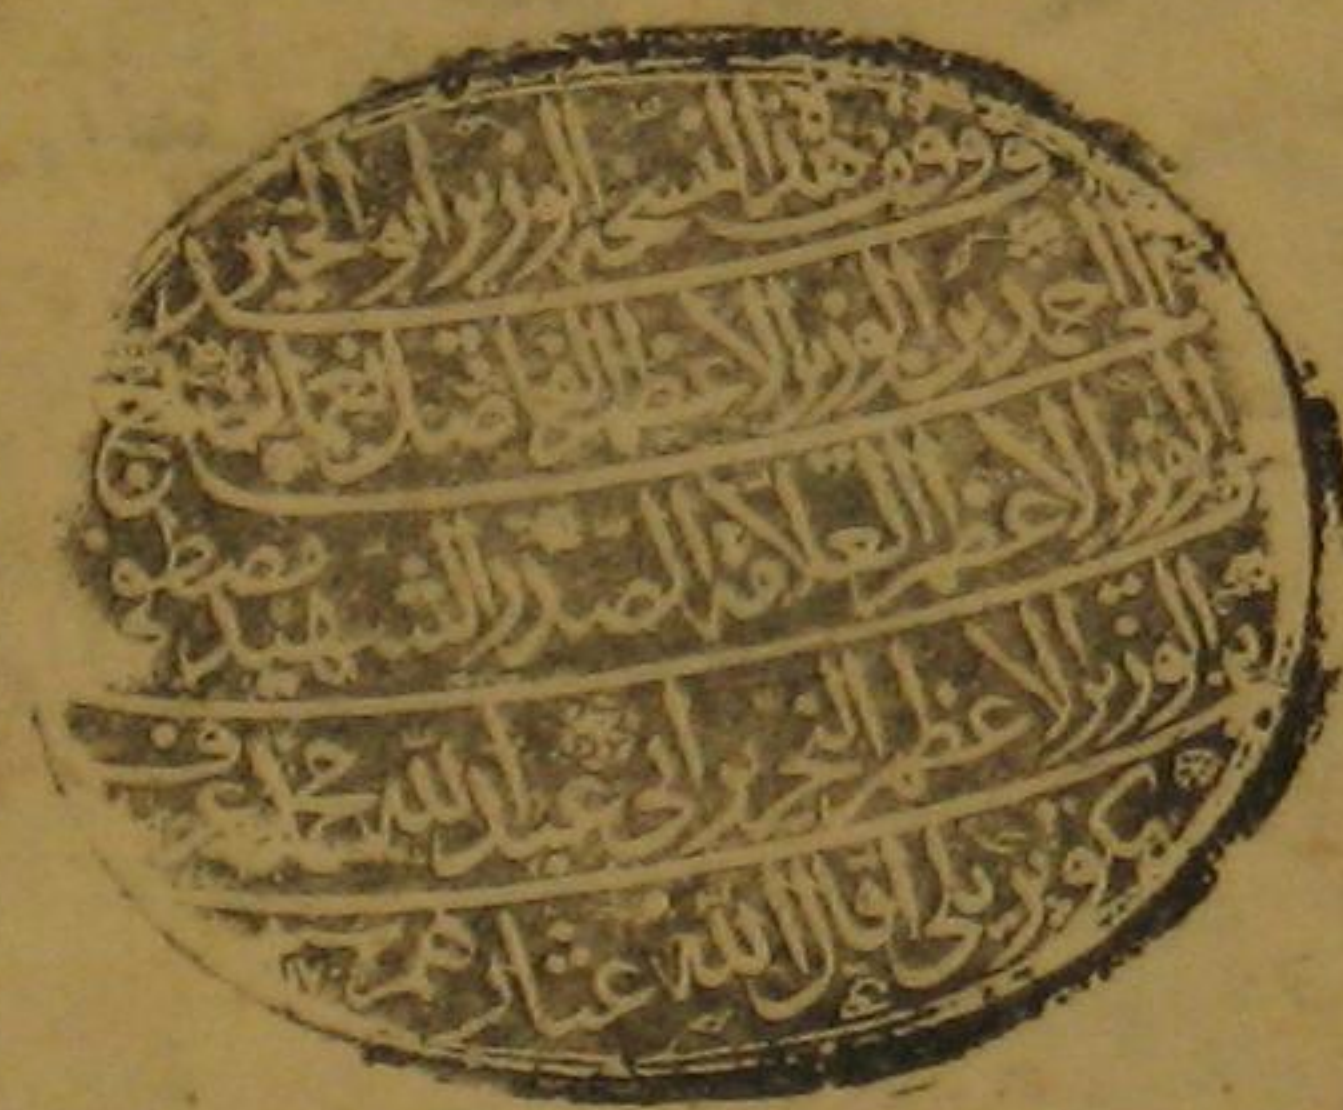 وقف هذا النسخة الوزير ابو الخير الحاج
احمد بن الوزير الاعظم الفاضل نعمان بن
الوزير الاعظم العلامة الصدر الشهيد مصطفى
بن الوزير الاعظم النحرير ابي عبد الله محمد عرف
بكوپريلي اقال الله عثارهم